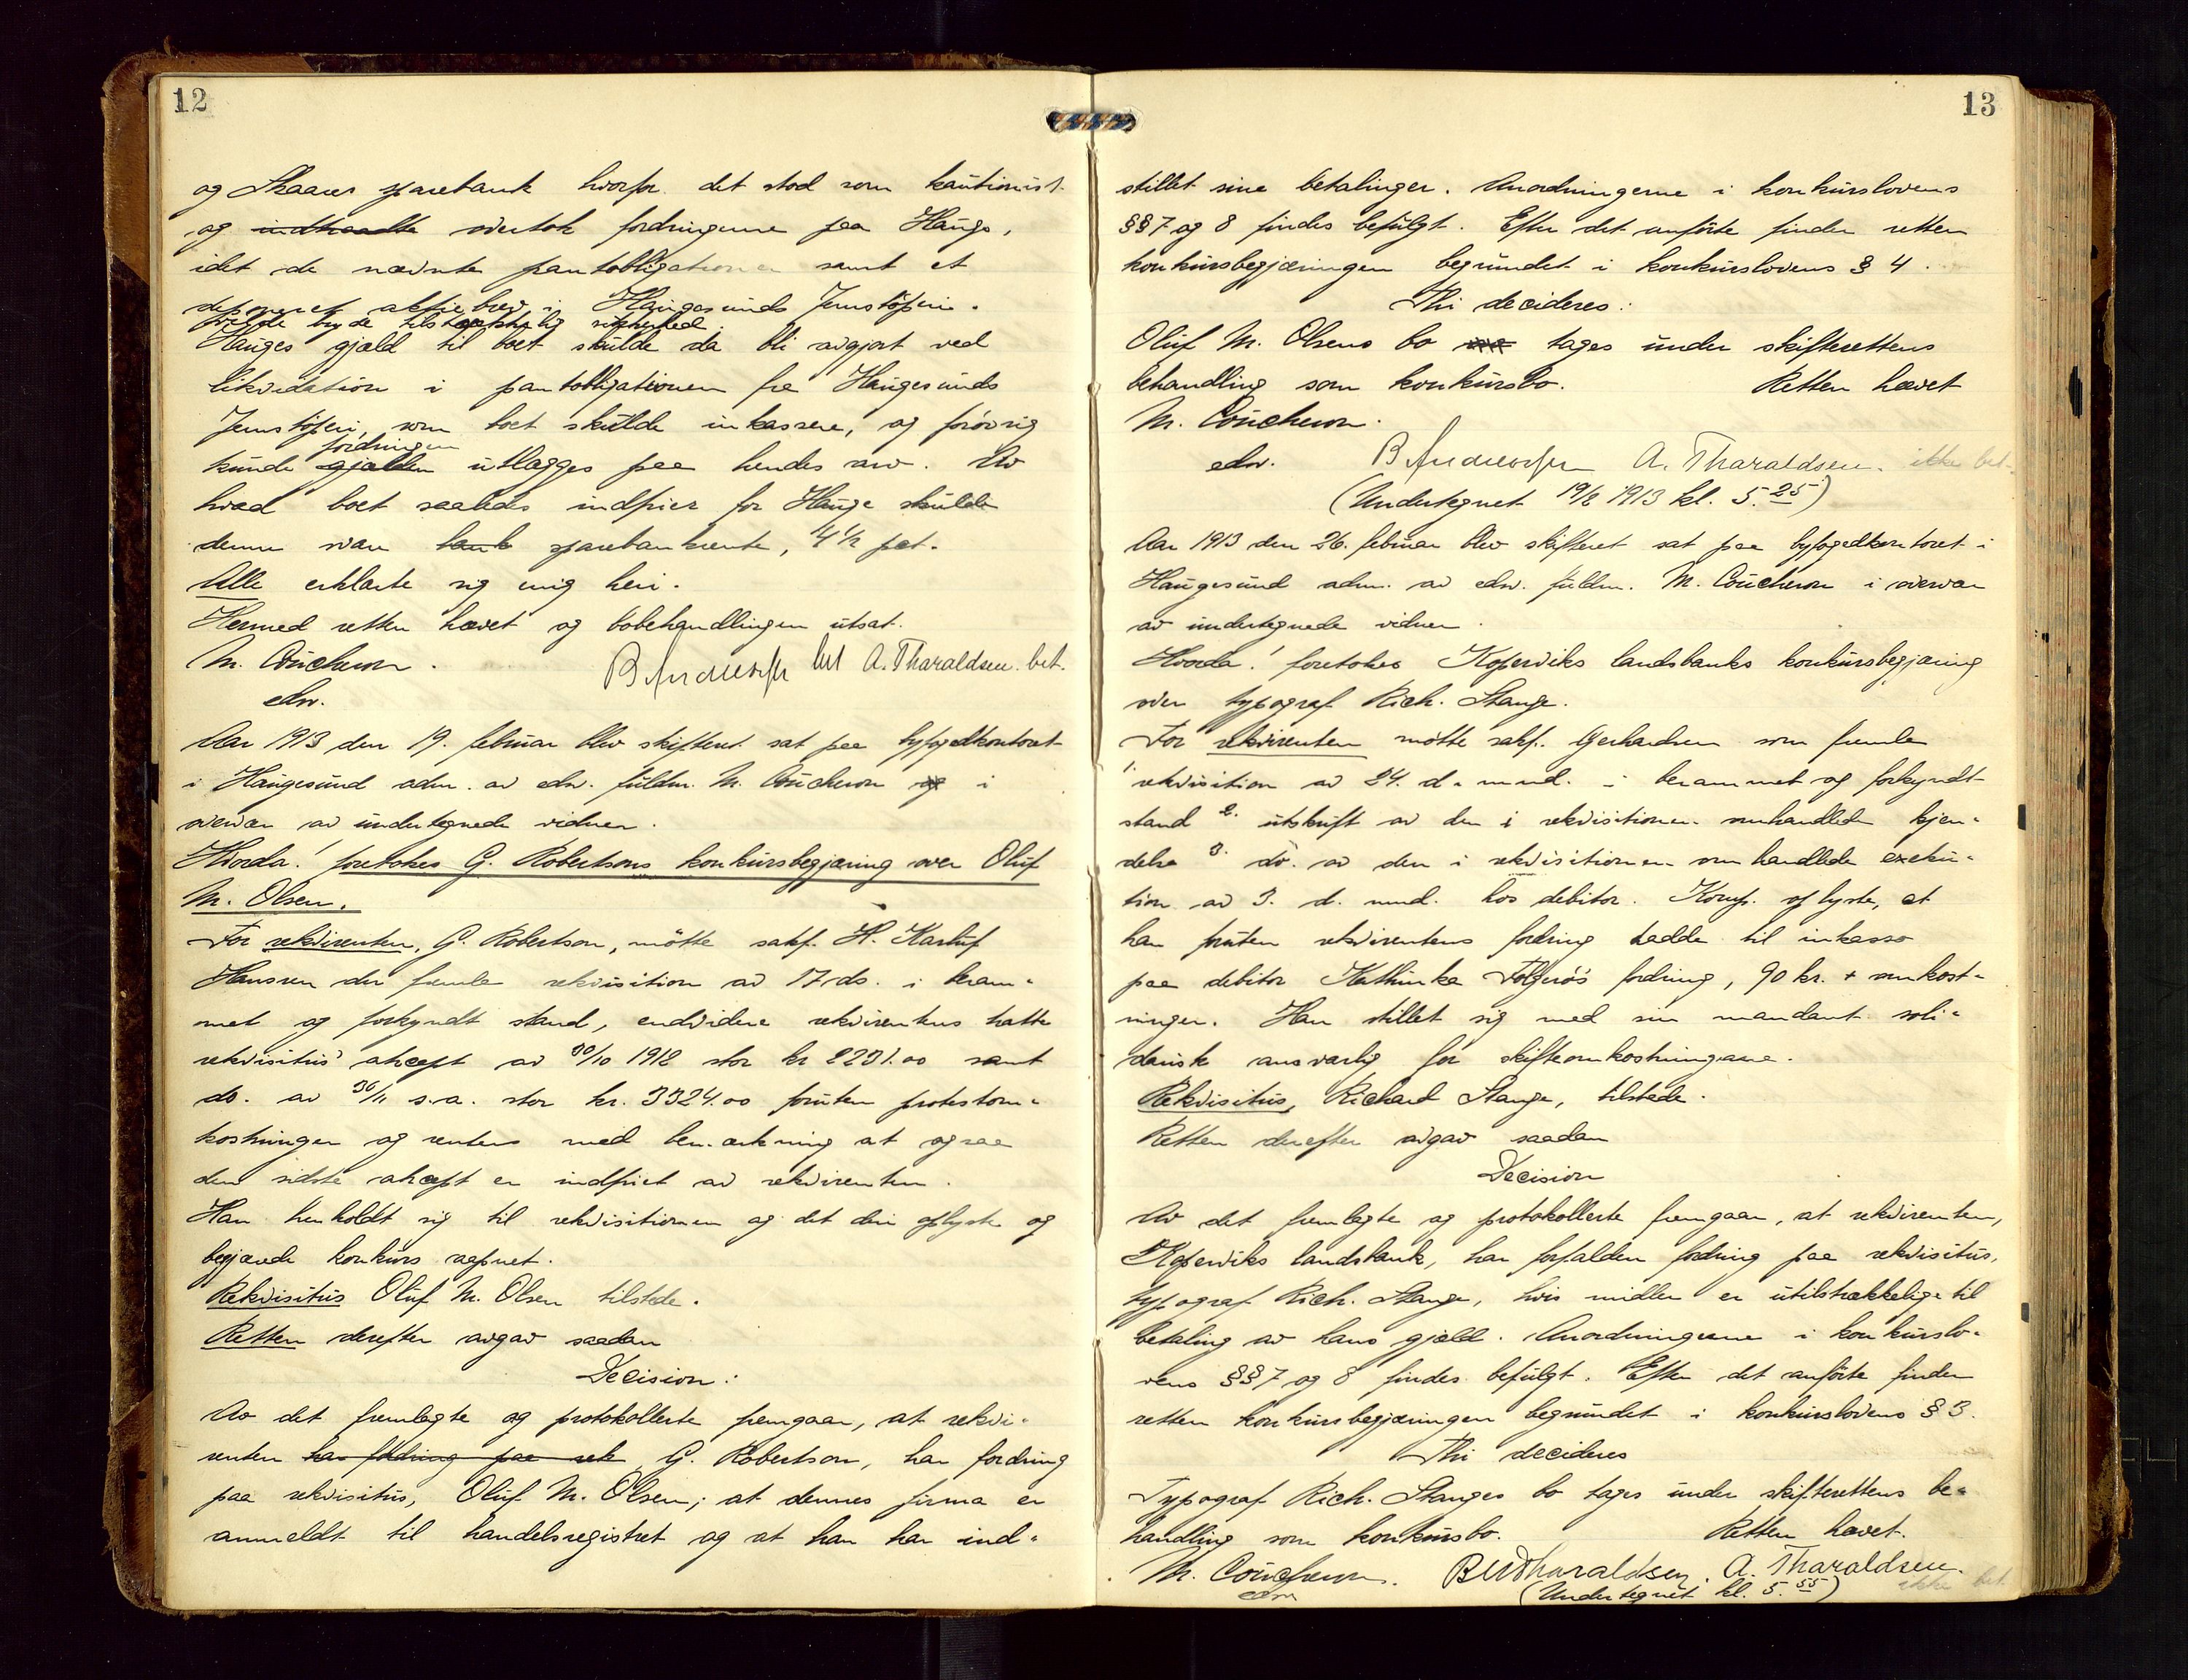 12
og Skaare sparebank hvorfor det stod som kautionist
og indtraadte overtok fordringerne paa Hauge,
idet de nævnte pantobligationer samt et
deponeret aktiebrev i Haugesunds Jernstøperi
vilde byde tilstrækkelig sikkerhed.
Hauges gjæld til boet skulde da bli avgjort ved
likvidation i pantobligationen fra Haugesunds
Jernstøperi, som boet skulde inkassere, og forøvrig
fordringen
kunde gjælden utlægges paa hendes arv. Av
hvad boet saaledes indfrier for Hauge skulde
denne svare bank sparebankrente, 4½ pct.
Alle erklærte sig enig heri.
Hermed retten hævet og bobehandlingen utsat.
M. Coucheron. B. Andersen A. Tharaldsen. bet.
edsv.
Aar 1913 den 19. februar blev skifteret sat paa byfogedkontoret
i Haugesund adm. av edsv. fuldm. M. Coucheron og i
overvær av undertegnede vidner.
Hvorda! foretokes G. Robertsons konkursbegjæring over Oluf
M. Olsen.
For rekvirenten, G. Robertson, møtte sakf. H. Karluf
Hanssen der fremla rekvisition av 17. ds. i beram-
met og forkyndt stand, endvidere rekvirentens hatte
rekvisitus' aksept av 30/10 1912 stor kr 2231.00 samt
do. av 30/11 s.a. stor kr. 3324.00 foruten protestom-
kostninger og renter med bemerkning at ogsaa
den sidste aksept er indfriet av rekvirenten.
Han henholdt sig til rekvisitionen og det deri oplyste og
begjærede konkurs aapnet.
Rekvisitus Oluf M. Olsen tilstede.
Retten derefter avgav saadan
Decision:
Av det fremlagte og protokollerte fremgaar, at rekvi-
renten har fordring paa rek G. Robertson, har fordring
paa rekvisitus, Oluf M. Olsen; at dennes firma er
anmeldt til handelsregistret og at han har ind-
13
stillet sine betalinger. Anordningerne i konkurslovens
§§ 7 og 8 findes befulgt. Efter det anførte finder retten
konkursbegjæringen begrundet i konkurslovens § 4.
Thi decideres:
Oluf M. Olsens bo tages under skifterettens
behandling som konkursbo. Retten hævet
M. Coucheron.
edsv. B. Andersen A. Tharaldsen. ikke bet.
(Undertegnet 19/2 1913 kl. 5.25)
Aar 1913 den 26. februar blev skifteret sat paa byfogedkontoret i
Haugesund adm. av edsv. fuldm. M. Coucheron i overvær
av undertegnede vidner.
Hvorda! foretokes Koperviks landsbanks konkursbegjæring
over typograf Rich. Stange.
For rekvirenten møtte sakf. Gerhardsen som fremla
1. rekvisition av 24. d. mnd. i berammet og forkyndt
stand 2. utskrift av den i rekvisitionen omhandlede kjen-
delse 3. do. av den i rekvisitionen omhandlede exeku-
tion av 3. d. mnd. hos debitor. Komp. oplyste, at
han foruten rekvirentens fordring hadde til inkasso
paa debitor Kathinka Folgerøs fordring, 90 kr. + omkost-
ninger. Han stillet sig med sin mandant soli-
darisk ansvarlig for skifteomkostningerne.
Rekvisitus, Richard Stange, tilstede.
Retten derefter avgav saadan
Decision
Av det fremlagte og protokollerte fremgaar, at rekvirenten,
Koperviks landsbank, har forfalden fordring paa rekvisitus,
typograf Rich. Stange, hvis midler er utilstrækkelige til
betaling av hans gjæld. Anordningerne i konkurslo-
vens §§ 7 og 8 findes befulgt. Efter det anførte finder
retten konkursbegjæringen begrundet i konkurslovens § 3.
Thi decideres
Typograf Rich. Stanges bo tages under skifterettens be-
handling som konkursbo. Retten hævet.
M. Coucheron. B W Tharaldsen. A. Tharaldsen.
edsv (Undertegnet kl. 5.55) ikke bet.